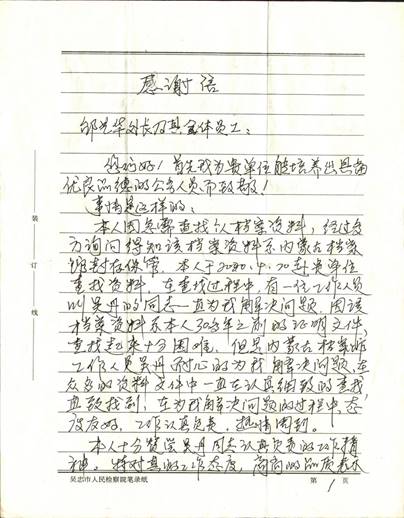 感谢信
邬处长及其全体员工:
您们好!首先我为贵单位能培养出具备
优良品德的公务人员而致敬!
事情是这样的:
本人因急需查找个人档案资料,经过多
方询问得知该档案资料系内蒙古档案
馆封存保管,本人于2020.4.20赴贵单位
查找资料,在查找过程中,有一位工作人员
叫吴丹的同志一直为我解决问题,因该
档案资料系本人30多年之前的证明文件,
查找起来十分困难,但是内蒙古档案馆
工作人员吴丹耐心的为我解决问题,在
众多的资料文件中一直在认真细致的查找
直致找到,在为我解决问题的过程中,态
度友好,工作认真负责,热情周到。
本人十分赞赏吴丹同志认真负责的工作精
神。特对其的工作态度,高尚的品质表示
装
订
线
吴忠市人民检察院笔录纸
第 1 页